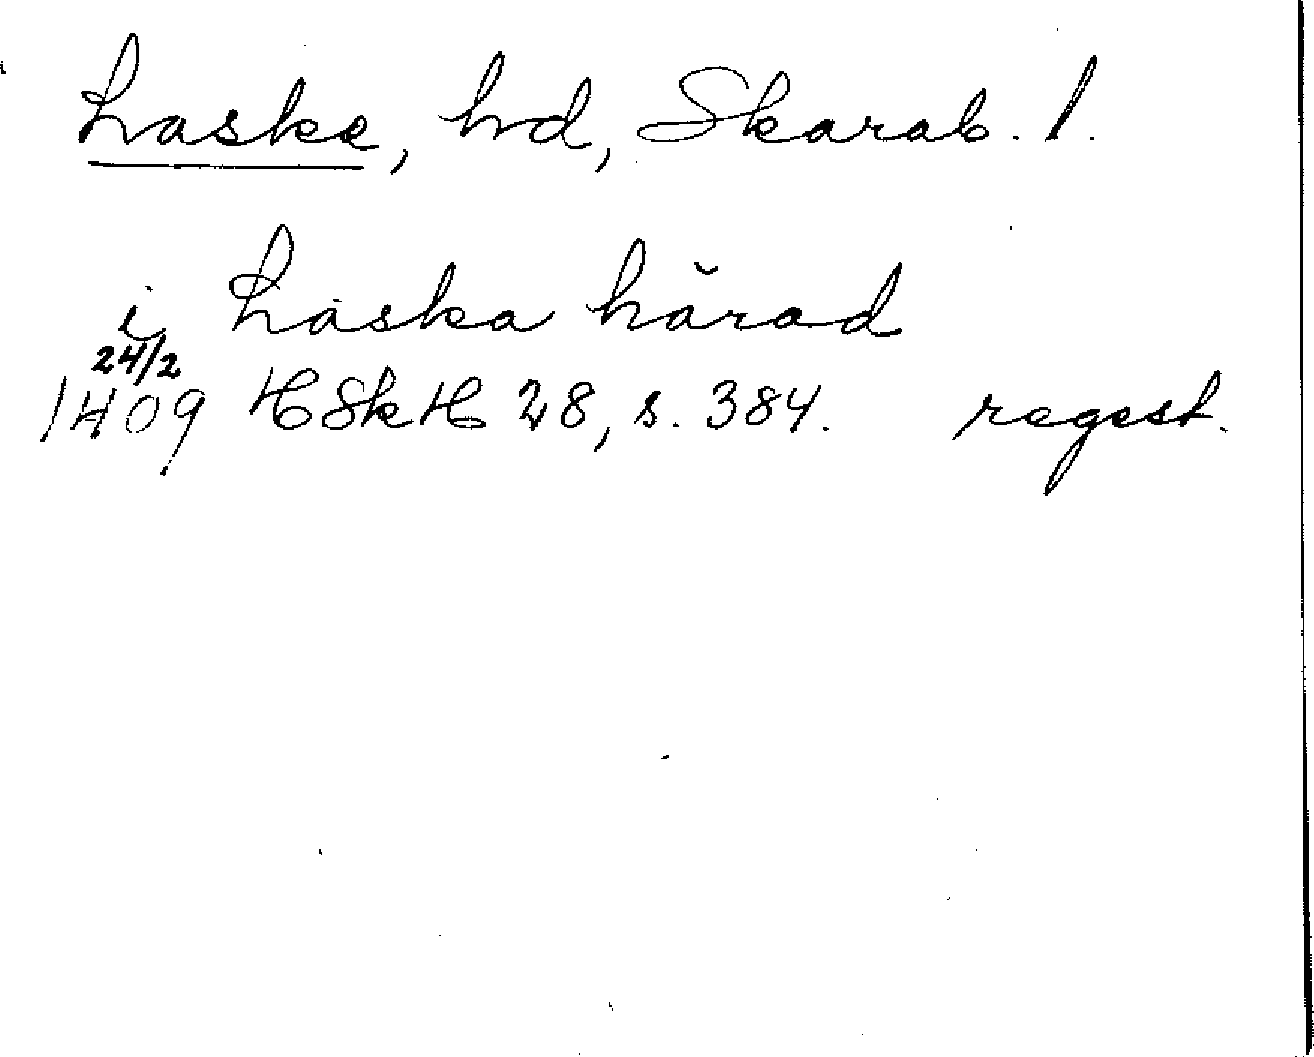 Laske, hd, Skarab. l.
i Laska härad
24/2
1409 HSkH 28, s. 384. regest.